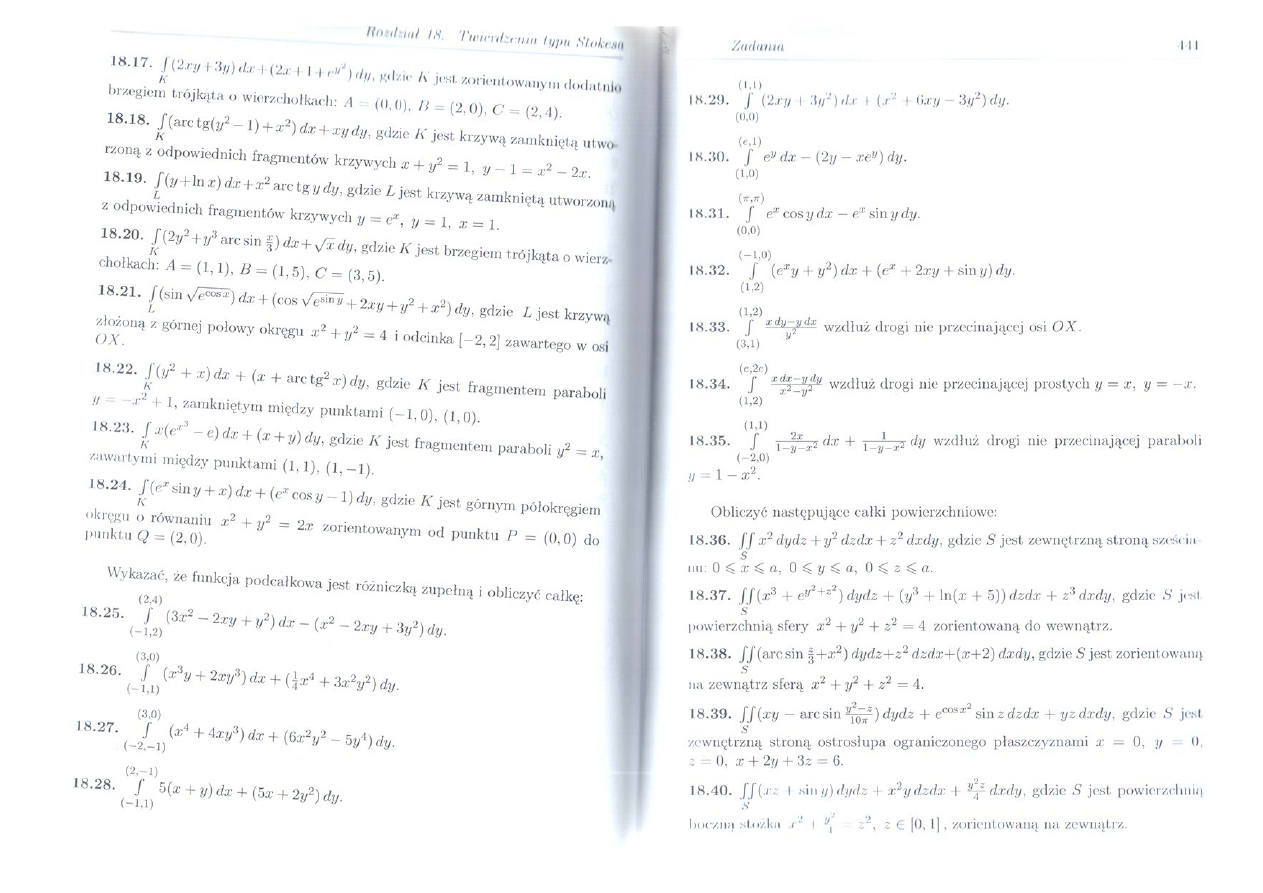 Rozdział 18. Twierdzenia typu Stokesa
18.17. ∫(2xy+3y) dx+(2x+1+e^{y²}) dy, gdzie K jest zorientowanym dodatnio
K
brzegiem trójkąta o wierzchołkach: A = (0,0), B = (2,0), C = (2,4).
18.18. ∫(arc tg(y² − 1)+x²) dx+xy dy, gdzie K jest krzywą zamkniętą utwo-
K
rzoną z odpowiednich fragmentów krzywych x + y² = 1, y − 1 = x² − 2x.
18.19. ∫(y+ln x) dx+x² arc tg y dy, gdzie L jest krzywą zamkniętą utworzoną
L
z odpowiednich fragmentów krzywych y = e^x, y = 1, x = 1.
18.20. ∫(2y²+y³ arc sin x/3) dx+√x dy, gdzie K jest brzegiem trójkąta o wierz-
K
chołkach: A = (1,1), B = (1,5), C = (3,5).
18.21. ∫(sin √(e^{cos x}) dx + (cos √(e^{sin y}) + 2xy + y² + x²) dy, gdzie L jest krzywą
L
złożoną z górnej połowy okręgu x² + y² = 4 i odcinka [−2, 2] zawartego w osi
OX.
18.22. ∫(y² + x) dx + (x + arc tg² x) dy, gdzie K jest fragmentem paraboli
K
y = −x² + 1, zamkniętym między punktami (−1,0), (1,0).
18.23. ∫ x(e^{x³} − e) dx + (x + y) dy, gdzie K jest fragmentem paraboli y² = x,
K
zawartymi między punktami (1,1), (1,−1).
18.24. ∫(e^x sin y + x) dx + (e^x cos y − 1) dy, gdzie K jest górnym półokręgiem
K
okręgu o równaniu x² + y² = 2x zorientowanym od punktu P = (0,0) do
punktu Q = (2,0).
Wykazać, że funkcja podcałkowa jest różniczką zupełną i obliczyć całkę:
(2,4)
18.25. ∫ (3x² − 2xy + y²) dx − (x² − 2xy + 3y²) dy.
(−1,2)
(3,0)
18.26. ∫ (x³y + 2xy³) dx + (1/4 x⁴ + 3x²y²) dy.
(−1,1)
(3,0)
18.27. ∫ (x⁴ + 4xy³) dx + (6x²y² − 5y⁴) dy.
(−2,−1)
(2,−1)
18.28. ∫ 5(x + y) dx + (5x + 2y²) dy.
(−1,1)
Zadania 441
(1,1)
18.29. ∫ (2xy + 3y²) dx + (x² + 6xy − 3y²) dy.
(0,0)
(e,1)
18.30. ∫ e^y dx − (2y − xe^y) dy.
(1,0)
(π,π)
18.31. ∫ e^x cos y dx − e^x sin y dy.
(0,0)
(−1,0)
18.32. ∫ (e^x y + y²) dx + (e^x + 2xy + sin y) dy.
(1,2)
(1,2)
18.33. ∫ (x dy−y dx)/y² wzdłuż drogi nie przecinającej osi OX.
(3,1)
(e,2e)
18.34. ∫ (x dx−y dy)/(x²−y²) wzdłuż drogi nie przecinającej prostych y = x, y = −x.
(1,2)
(1,1)
18.35. ∫ 2x/(1−y−x²) dx + 1/(1−y−x²) dy wzdłuż drogi nie przecinającej paraboli
(−2,0)
y = 1 − x².
Obliczyć następujące całki powierzchniowe:
18.36. ∫∫ x² dydz + y² dzdx + z² dxdy, gdzie S jest zewnętrzną stroną sześcia-
S
nu: 0 ⩽ x ⩽ a, 0 ⩽ y ⩽ a, 0 ⩽ z ⩽ a.
18.37. ∫∫(x³ + e^{y²+z²}) dydz + (y³ + ln(x + 5)) dzdx + z³ dxdy, gdzie S jest
S
powierzchnią sfery x² + y² + z² = 4 zorientowaną do wewnątrz.
18.38. ∫∫(arc sin z/3+x²) dydz+z² dzdx+(x+2) dxdy, gdzie S jest zorientowaną
S
na zewnątrz sferą x² + y² + z² = 4.
18.39. ∫∫(xy − arc sin (y²−z)/10π) dydz + e^{cos x²} sin z dzdx + yz dxdy, gdzie S jest
S
zewnętrzną stroną ostrosłupa ograniczonego płaszczyznami x = 0, y = 0,
z = 0, x + 2y + 3z = 6.
18.40. ∫∫(xz + sin y) dydz + x²y dzdx + y²z/4 dxdy, gdzie S jest powierzchnią
S
boczną stożka x² + y²/4 = z², z ∈ [0,1], zorientowaną na zewnątrz.